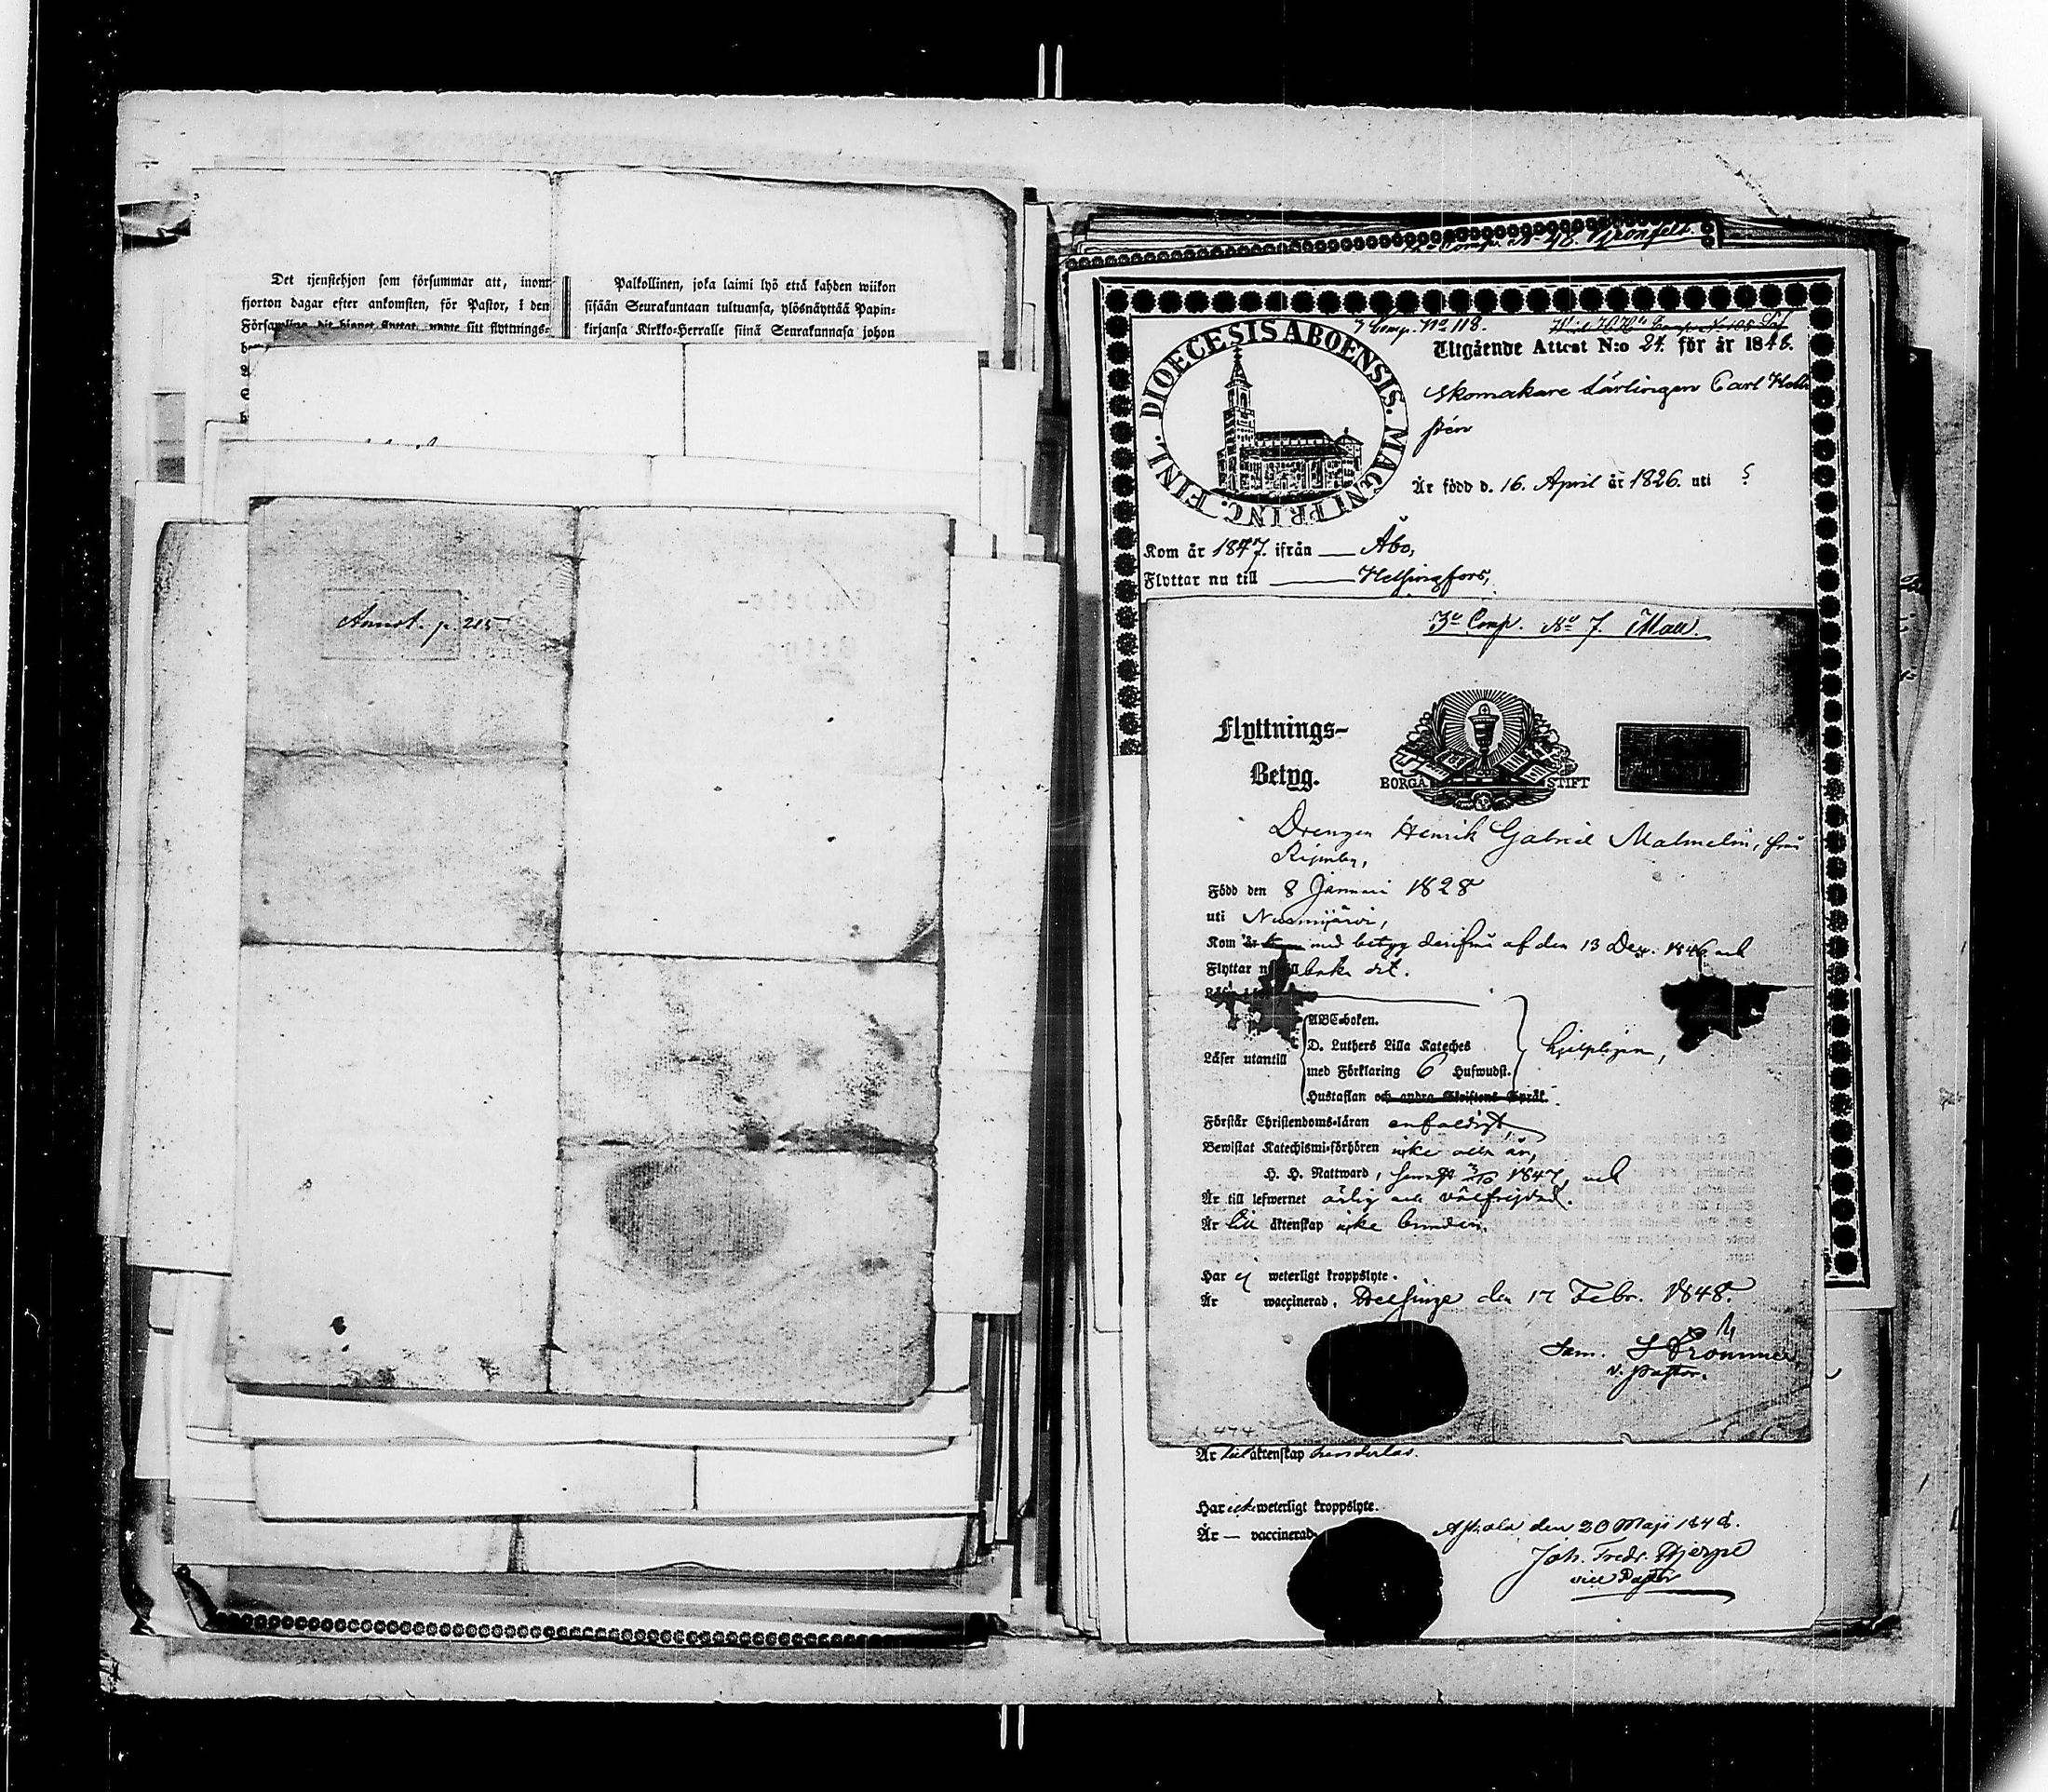 Det tjenstehjon som försummar att, inom
fjorton dagar efter ankomsten, för Pastor, i den
Palkollinen, joka laimi lyö että kahden wiikon
sisään Seurakuntaan tultuansa, ylösnäyttää Papin-
kirjansa Kirkko-Herralle siinä Seurakunnasa johon
Annot. p. 215
Comp. N 48. Grönfelt
7 Comp. No 118.
DIOECESIS ABOENSIS. MAGNI PRINC. FINL.
Utgående Attest N:o 24. för år 1848.
Skomakare Lärlingen Carl
Är född d. 16. April år 1826. uti ?
Kom år 1847. ifrån Åbo,
Flyttar nu till Helsingfors,
3e Comp. No 7. Mall.
Flyttnings-
Betyg.
BORGÅ STIFT
Drengen Henrik Gabriel Malmelin, från
Född den 8 Januari 1828
uti Nurmijärvi,
Kom år med betyg derifrån af den 13 Dec. 1846 och
Flyttar baka dit.
ABC-boken.
D. Luthers Lilla Kateches
Läser utantill
med Förklaring 6 Hufwudst.
hjelpligen,
Hustaflan och andra Skriftens Språk.
Förstår Christendoms-läran enfaldigt,
Bewistat Katechismi-förhören icke alla år,
H. H. Nattward, 1847, och
Är till lefwernet ärlig och välfrejdad.
Är till äktenskap icke bunden.
Har ej weterligt kroppslyte.
Är waccinerad. Helsinge den 17 Febr. 1848.
Sam. Strömmer
v. Pastor.
Är till äktenskap hinderlös.
Har icke weterligt kroppslyte.
Är — vaccinerad.
den 20 Maji 1848.
Joh. Fredr.
vice Pastor